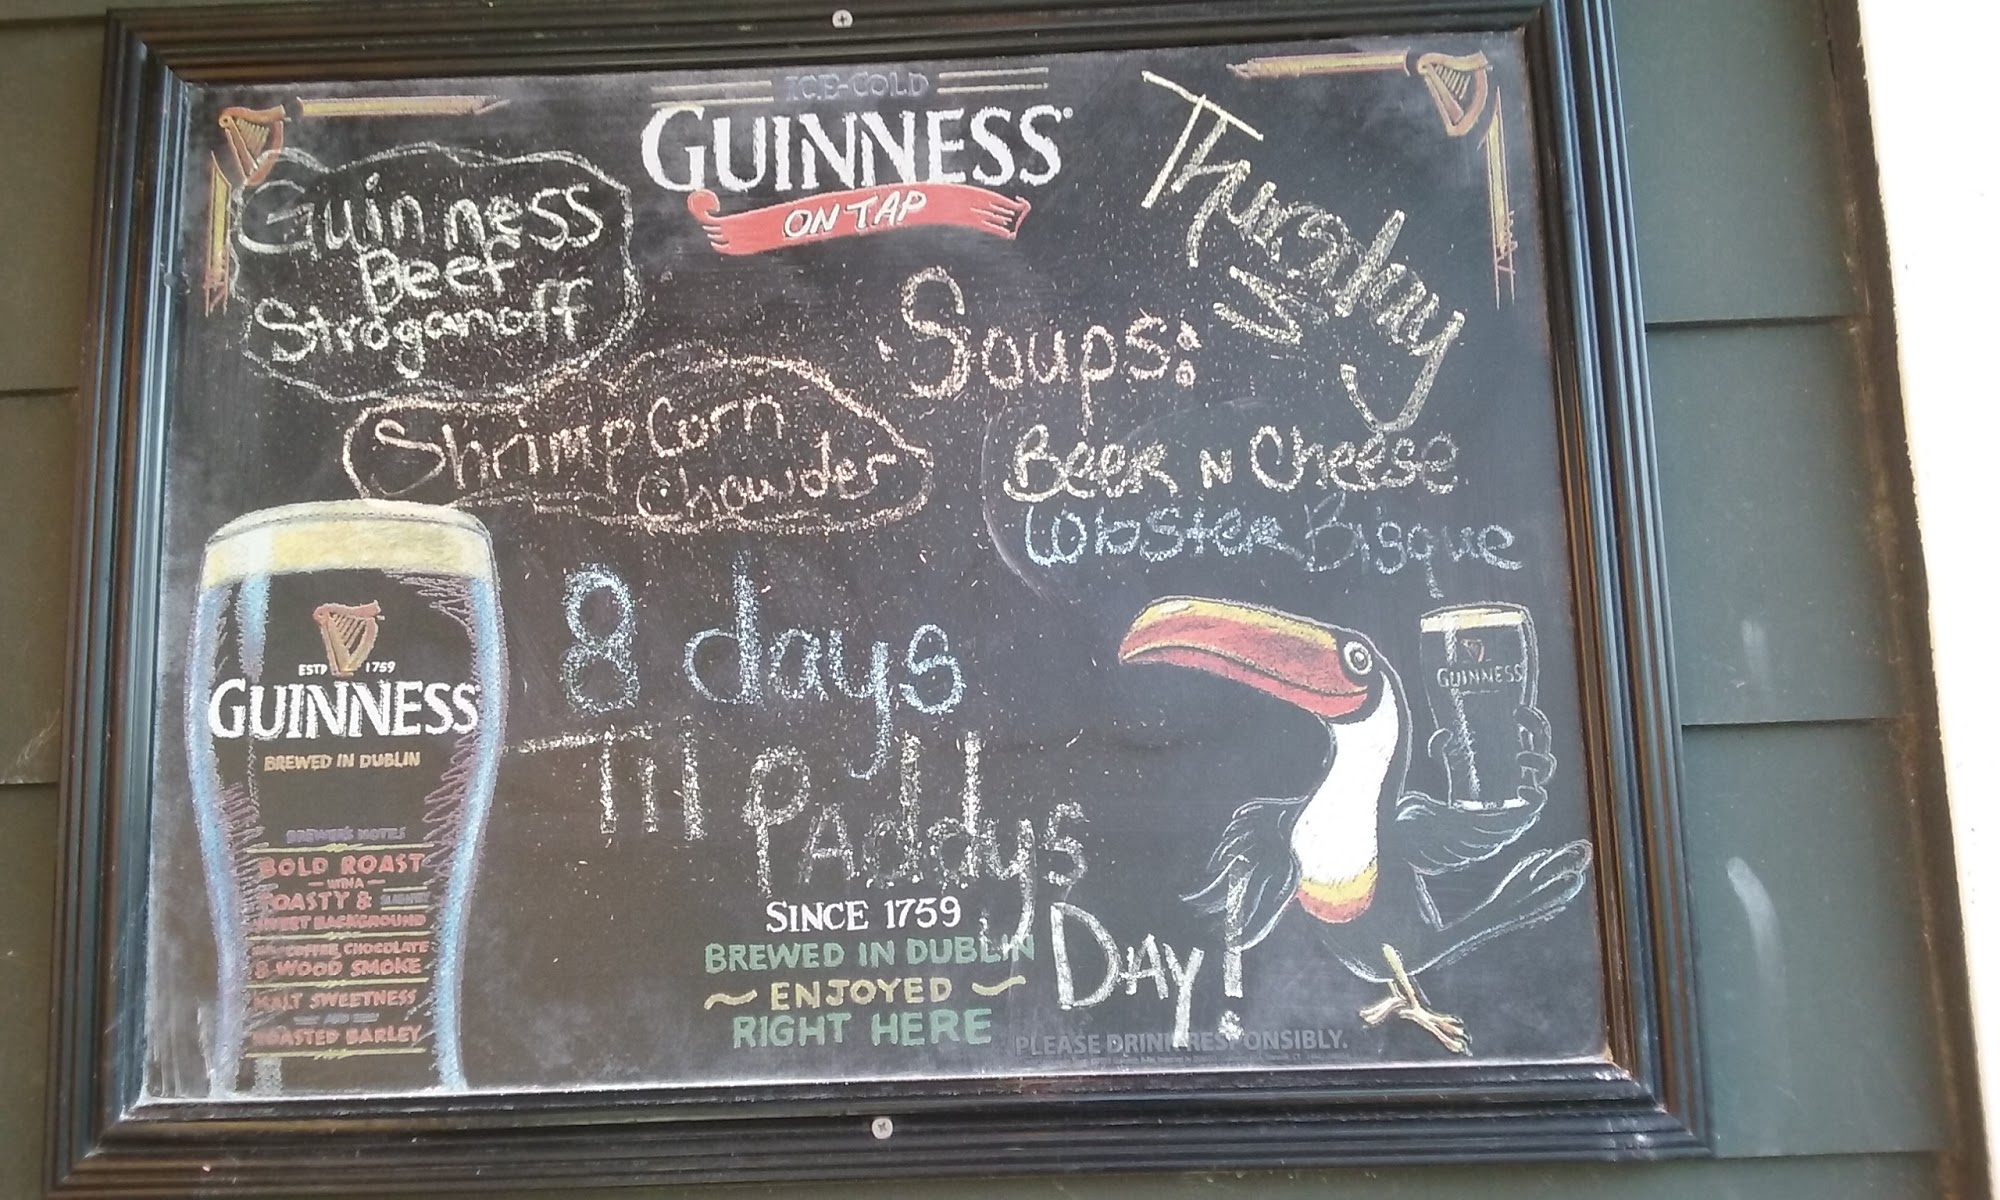 ICE-COLD
GUINNESS
ON TAP
Thursday
Guinness
Beef
Stroganoff
Soups:
Shrimp Corn
Chowder
Beer N Cheese
Lobster Bisque
8 days
Til Paddys
Day!
ESTD 1759
GUINNESS
BREWED IN DUBLIN
BREWER'S NOTES
BOLD ROAST
WITH A
TOASTY &
SWEET BACKGROUND
COFFEE, CHOCOLATE
& WOOD SMOKE
MALT SWEETNESS
AND
ROASTED BARLEY
GUINNESS
SINCE 1759
BREWED IN DUBLIN
~ ENJOYED ~
RIGHT HERE
PLEASE DRINK RESPONSIBLY.